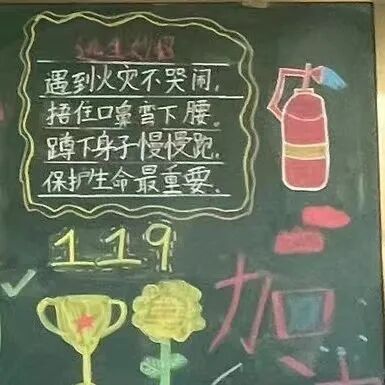 逃生儿歌
遇到火灾不哭闹。
捂住口鼻弯下腰。
蹲下身子慢慢跑。
保护生命最重要。
119
加